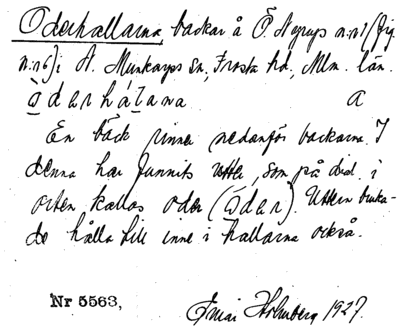 Oderhallarna, backar å Ö. Nyrup n:r 1 (frg.
n:r 6) i Ö. Munkarps sn, Frosta hd, Mlm. län.
ò d a r h á l a n a a
En bäck rinner nedanför backarna. I
denna har funnits utter, som på dial. i
orten kallas oder (ò d a r). Uttern bruka-
de hålla till inne i hallarna också.
Nr 5563,
Ingemar Holmberg 1927.